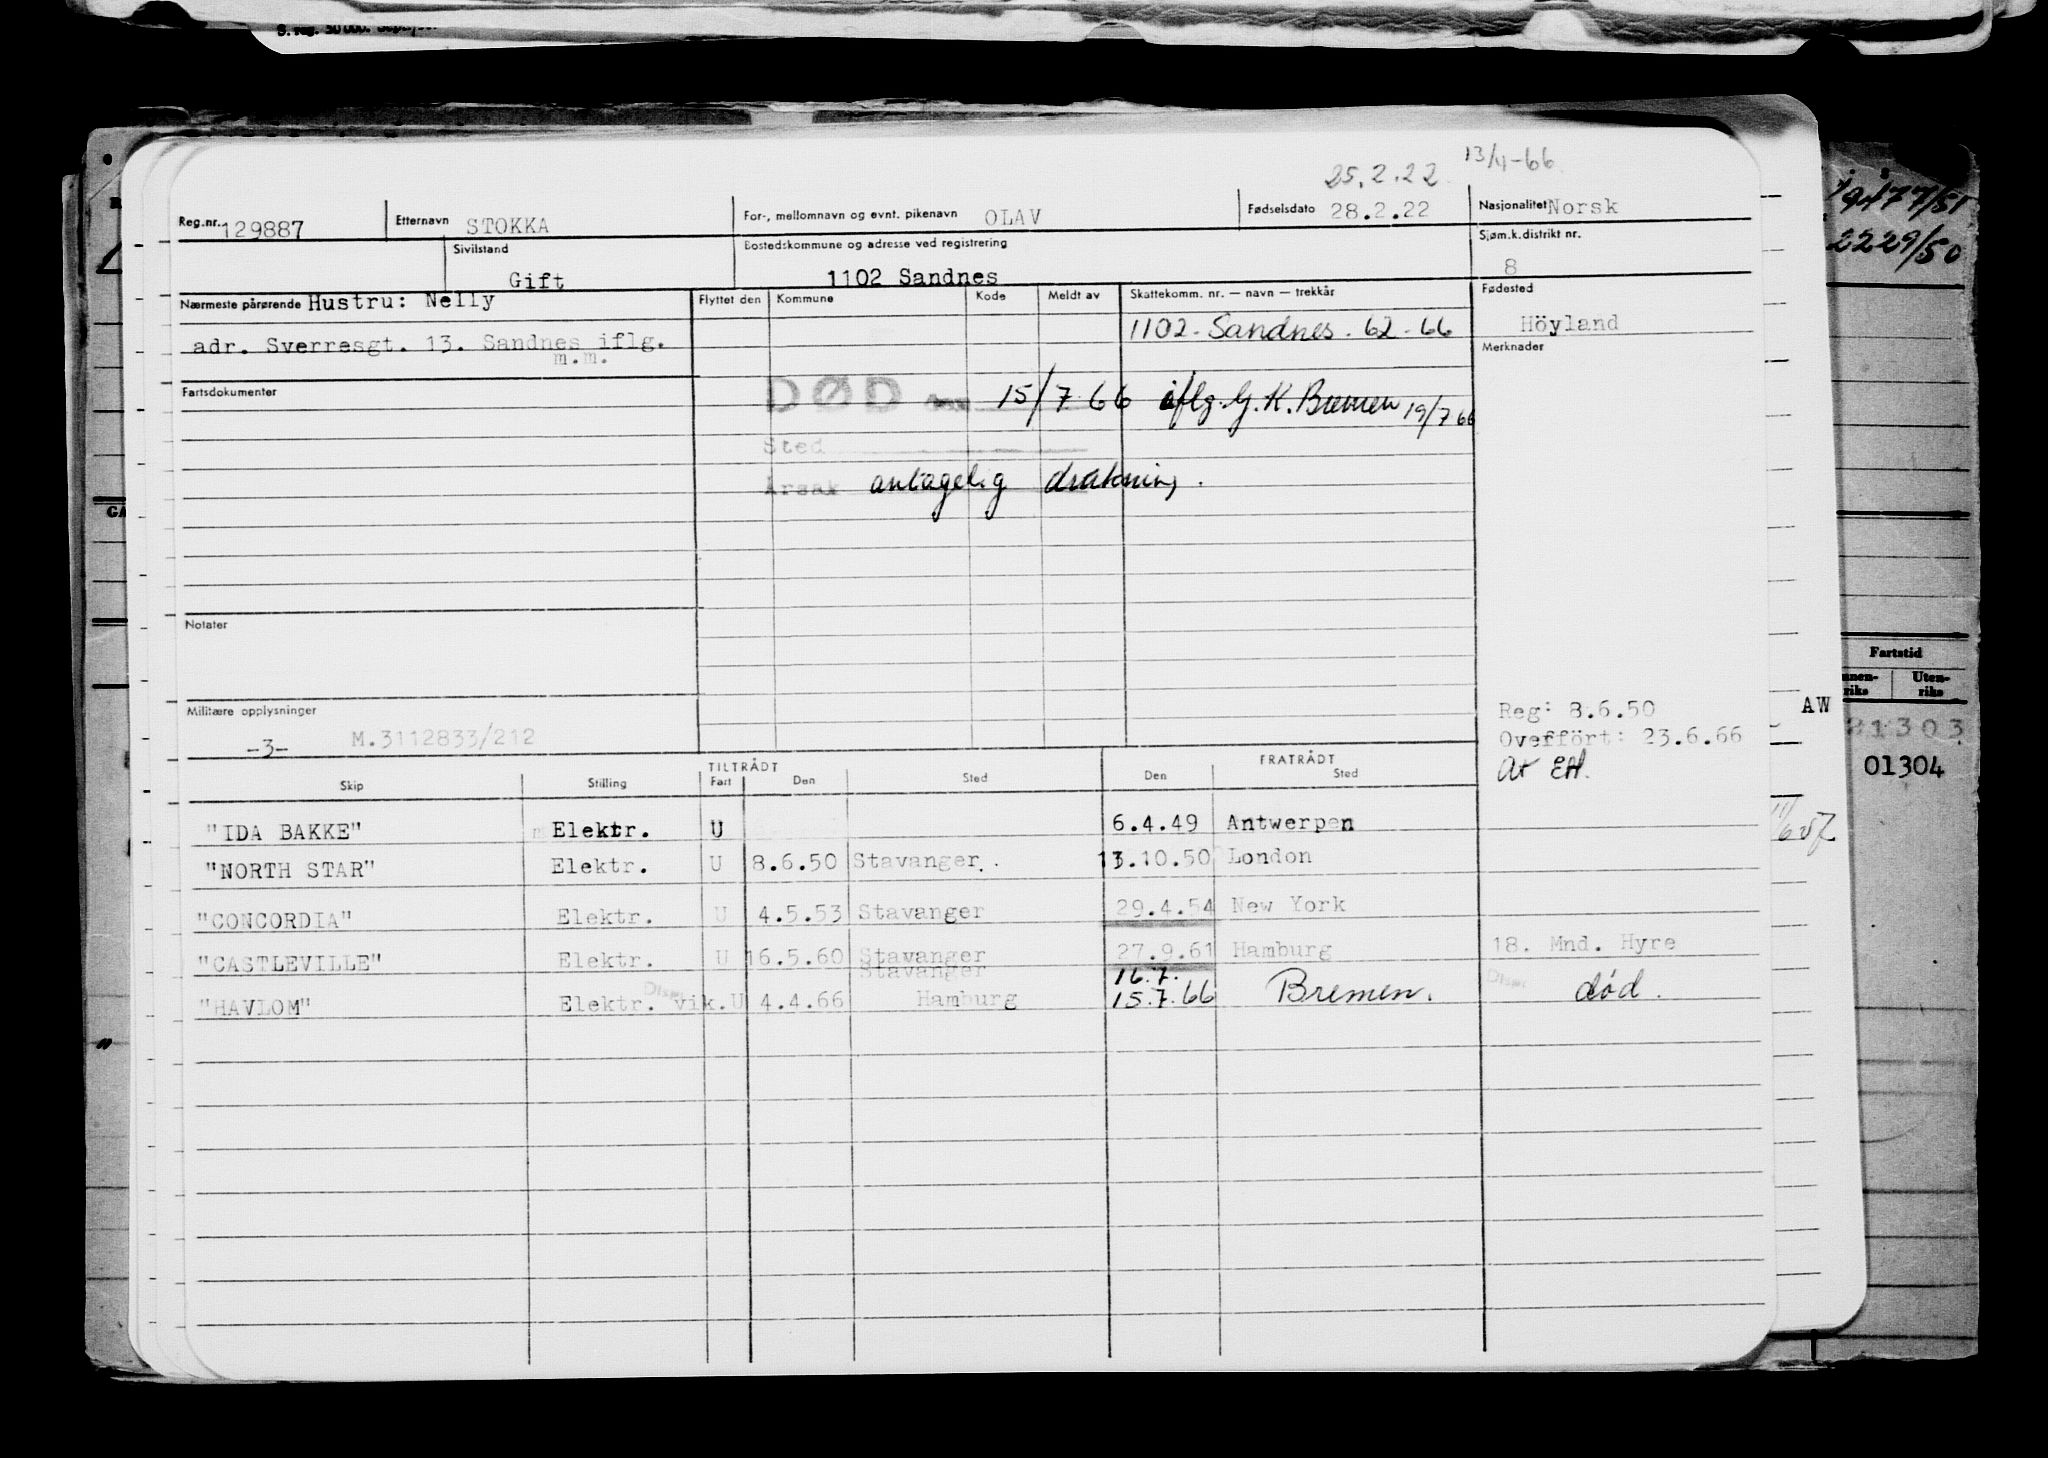 25.2.22 13/4-66
Reg.nr. 129887 Etternavn STOKKA For-, mellomnavn og evnt. pikenavn OLAV Fødselsdato 28.2.22 Nasjonalitet Norsk
Sivilstand Gift Bostedskommune og adresse ved registrering 1102 Sandnes Sjøm.k.distrikt nr. 8
Nærmeste pårørende Hustru: Nelly Flyttet den Kommune Kode Meldt av Skattekomm. nr. — navn — trekkår Fødested
adr. Sverresgt. 13. Sandnes iflg. 1102 - Sandnes. 62 - 66 Höyland
m.m. Merknader
Fartsdokumenter DØD 15/7 66 iflg. G.K. Bremen 19/7 66
Sted
Årsak antagelig drukning.
Notater
Militære opplysninger Reg: 8.6.50
-3- M.3112833/212 Overfört: 23.6.66
TILTRÅDT FRATRÅDT
Skip Stilling Fart Den Sted Den Sted
"IDA BAKKE" Elektr. U 6.4.49 Antwerpen
"NORTH STAR" Elektr. U 8.6.50 Stavanger. 13.10.50 London
"CONCORDIA" Elektr. U 4.5.53 Stavanger 29.4.54 New York
"CASTLEVILLE" Elektr. U 16.5.60 Stavanger 27.9.61 Hamburg 18. Mnd. Hyre
Stavanger 16.7.
"HAVLOM" Elektr. vik. U 4.4.66 Hamburg 15.7.66 Bremen. død.
2229/50
Fartstid
Uten-
riks
AW
81303
01304